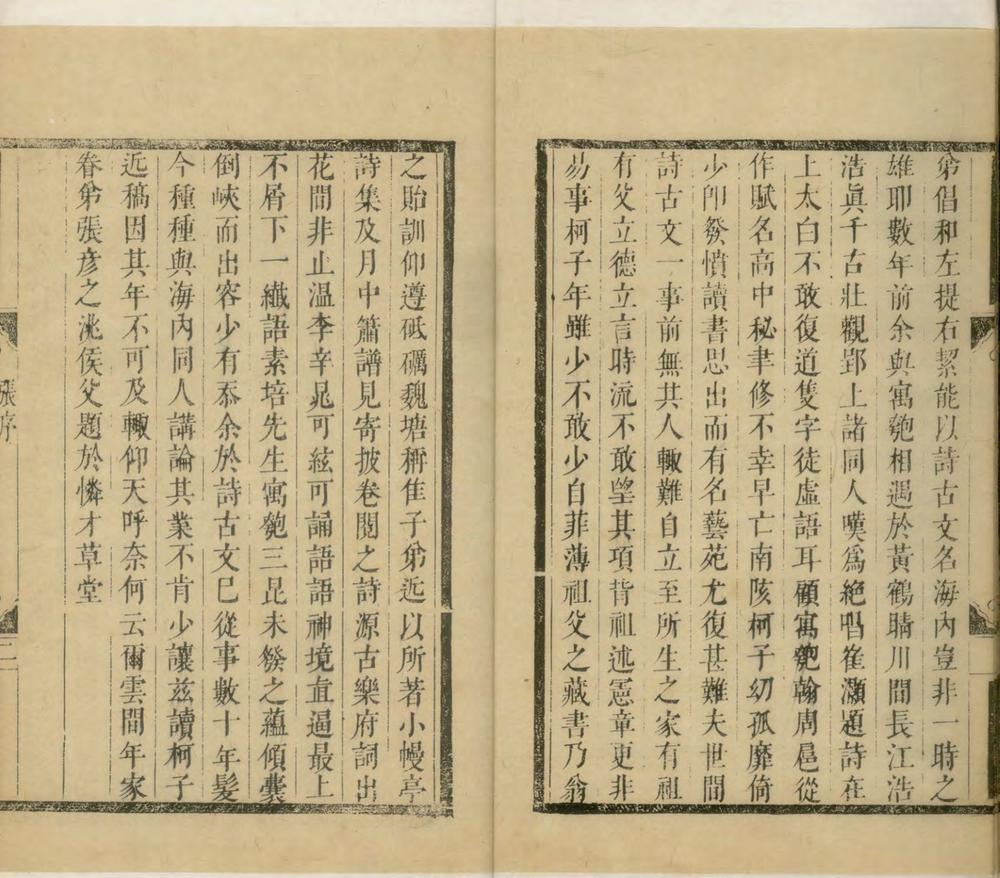 弟倡和左提右絜能以詩古文名海內豈非一時之
雄耶數年前余與寓匏相遇於黃鶴晴川間長江浩
浩眞千古壯觀郢上諸同人嘆爲絶唱崔灝題詩在
上太白不敢復道隻字徒虛語耳顧寓匏翰周扈從
作賦名高中秘聿修不幸早亡南陔柯子幼孤靡倚
少卽發憤讀書思出而有名藝苑尤復甚難夫世間
詩古文一事前無其人輙難自立至所生之家有祖
有父立德立言時流不敢望其項背祖述憲章更非
易事柯子年雖少不敢少自菲薄祖父之藏書乃翁
之貽訓仰遵砥礪魏塘稱隹子弟近以所著小幔亭
詩集及月中簫譜見寄披卷閱之詩源古樂府詞出
花間非止温李辛晁可絃可誦語語神境直逼最上
不屑下一纎語素培先生寓匏三昆未發之蘊傾囊
倒峽而出容少有忝余於詩古文巳從事數十年髮
今種種與海內同人講論其業不肯少讓兹讀柯子
近稿因其年不可及輙仰天呼奈何云爾雲間年家
眷弟張彥之洮侯父題於憐才草堂
張序
二